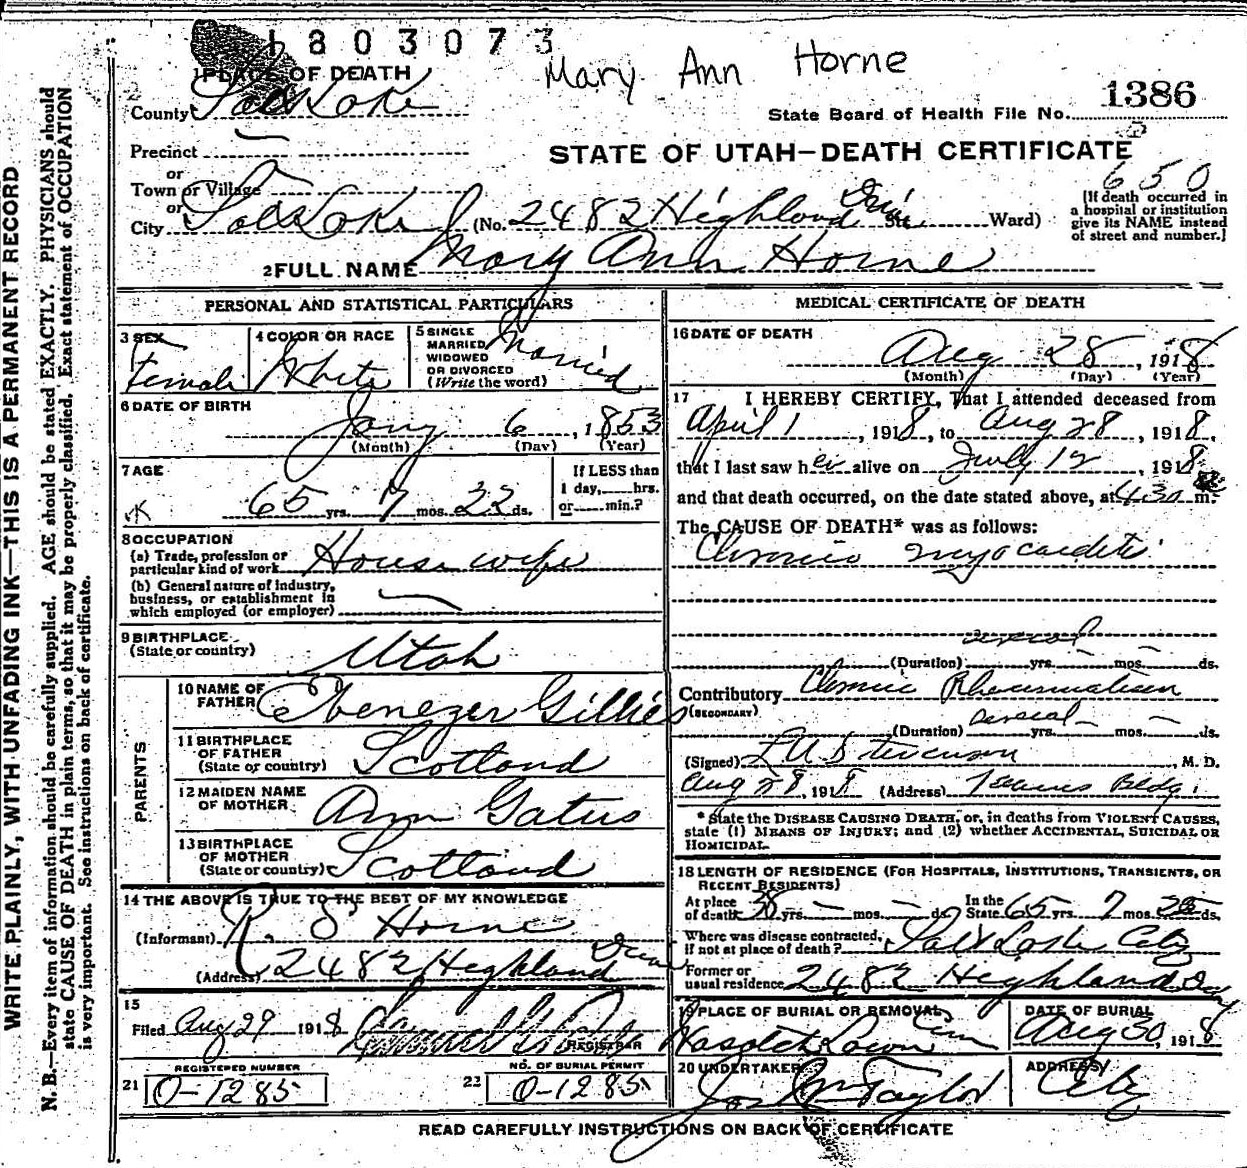 1803073
Mary Ann Horne
1386
State Board of Health File No.
STATE OF UTAH—DEATH CERTIFICATE
650
1 PLACE OF DEATH
County Salt Lake
Precinct
or
Town or Village
or
City Salt Lake (No. 2482 Highland Drive St. Ward)
[If death occurred in
a hospital or institution
give its NAME instead
of street and number.]
2 FULL NAME Mary Ann Horne
WRITE PLAINLY, WITH UNFADING INK—THIS IS A PERMANENT RECORD
N. B.—Every item of information should be carefully supplied. AGE should be stated EXACTLY. PHYSICIANS should
state CAUSE OF DEATH in plain terms, so that it may be properly classified. Exact statement of OCCUPATION
is very important. See instructions on back of certificate.
PERSONAL AND STATISTICAL PARTICULARS
3 SEX
Female
4 COLOR OR RACE
White
5 SINGLE
MARRIED
WIDOWED
OR DIVORCED
(Write the word)
Married
6 DATE OF BIRTH
Jany 6, 1853
(Month) (Day) (Year)
7 AGE
65 yrs. 7 mos. 22 ds.
If LESS than
1 day,......hrs.
or......min.?
8 OCCUPATION
(a) Trade, profession or
particular kind of work House wife
(b) General nature of industry,
business, or establishment in
which employed (or employer)
9 BIRTHPLACE
(State or country)
Utah
PARENTS
10 NAME OF
FATHER Ebenezer Gillies
11 BIRTHPLACE
OF FATHER
(State or country) Scotland
12 MAIDEN NAME
OF MOTHER Ann Gatus
13 BIRTHPLACE
OF MOTHER
(State or country) Scotland
14 THE ABOVE IS TRUE TO THE BEST OF MY KNOWLEDGE
(Informant) R. S Horne
(Address) 2482 Highland Drive
15
Filed Aug 29 1918
REGISTRAR
REGISTERED NUMBER
21 O-1285
NO. OF BURIAL PERMIT
22 O-1285
MEDICAL CERTIFICATE OF DEATH
16 DATE OF DEATH
Aug 28, 1918
(Month) (Day) (Year)
17 I HEREBY CERTIFY, That I attended deceased from
April 1, 1918, to Aug 28, 1918,
that I last saw her alive on July 12, 1918
and that death occurred, on the date stated above, at 430 m.
The CAUSE OF DEATH* was as follows:
Chronic myocardits
several
(Duration) yrs. mos. ds.
Contributory Chronic Rheumatism
(SECONDARY)
several
(Duration) yrs. mos. ds.
(Signed) L U Stevenson, M. D.
Aug 28, 1918 (Address) Bldg.
* State the DISEASE CAUSING DEATH, or, in deaths from VIOLENT CAUSES,
state (1) MEANS OF INJURY; and (2) whether ACCIDENTAL, SUICIDAL OR
HOMICIDAL.
18 LENGTH OF RESIDENCE (FOR HOSPITALS, INSTITUTIONS, TRANSIENTS, OR
RECENT RESIDENTS)
At place
of death 38 yrs. mos. ds.
In the
State 65 yrs. 7 mos. ds.
Where was disease contracted,
if not at place of death? Salt Lake City
Former or
usual residence 2482 Highland Drv
19 PLACE OF BURIAL OR REMOVAL
Wasatch Lawn Cem
DATE OF BURIAL
Aug 30, 1918
20 UNDERTAKER
Jos Wm Taylor
ADDRESS
City
READ CAREFULLY INSTRUCTIONS ON BACK OF CERTIFICATE